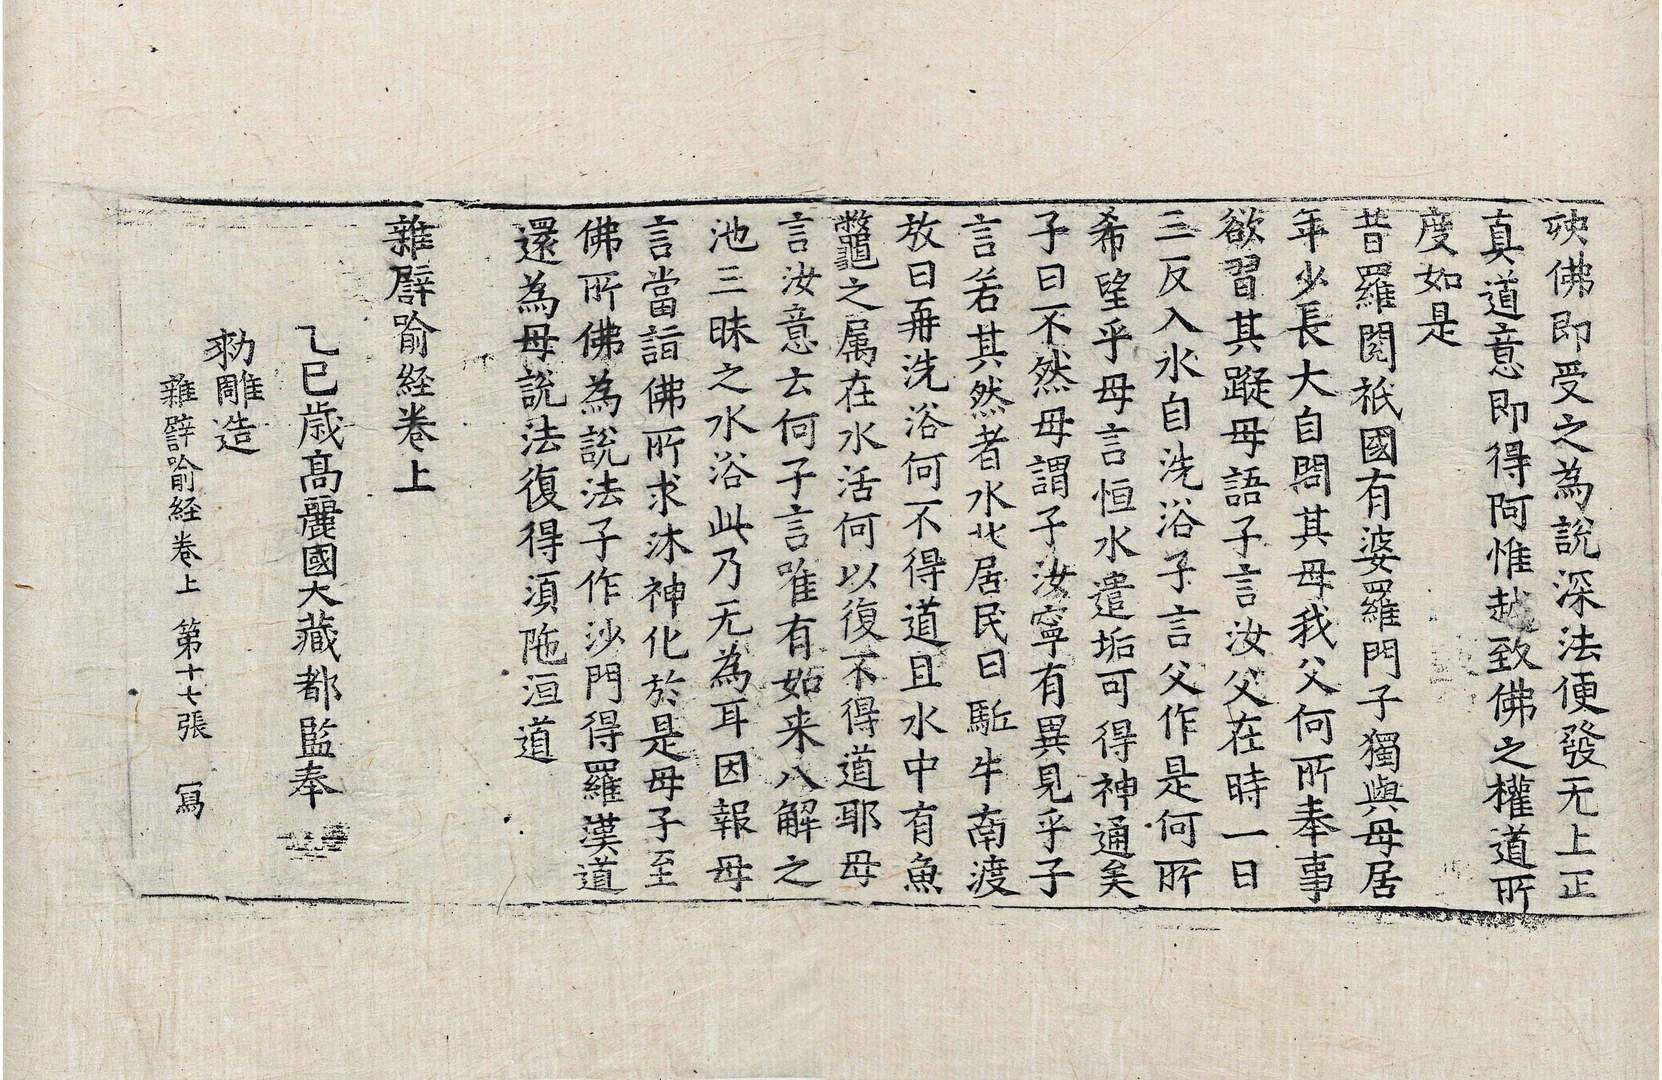 殃佛即受之為說深法便發无上正
真道意即得阿惟越致佛之權道所
度如是
昔羅閱祇國有婆羅門子獨與母居
年少長大自問其母我父何所奉事
欲習其蹤母語子言汝父在時一日
三反入水自洗浴子言父作是何所
希望乎母言恒水遣垢可得神通矣
子曰不然母謂子汝寧有異見乎子
言若其然者水北居民日駈牛南渡
放日再洗浴何不得道且水中有魚
鼈之属在水活何以復不得道耶母
言汝意云何子言唯有如来八解之
池三昧之水浴此乃无為耳因報母
言當詣佛所求沐神化於是母子至
佛所佛為說法子作沙門得羅漢道
還為母說法復得湏陁洹道
雜譬喻経卷上
乙巳歳髙麗國大藏都監奉
勑雕造
雜譬喻経卷上 第十七張 寫